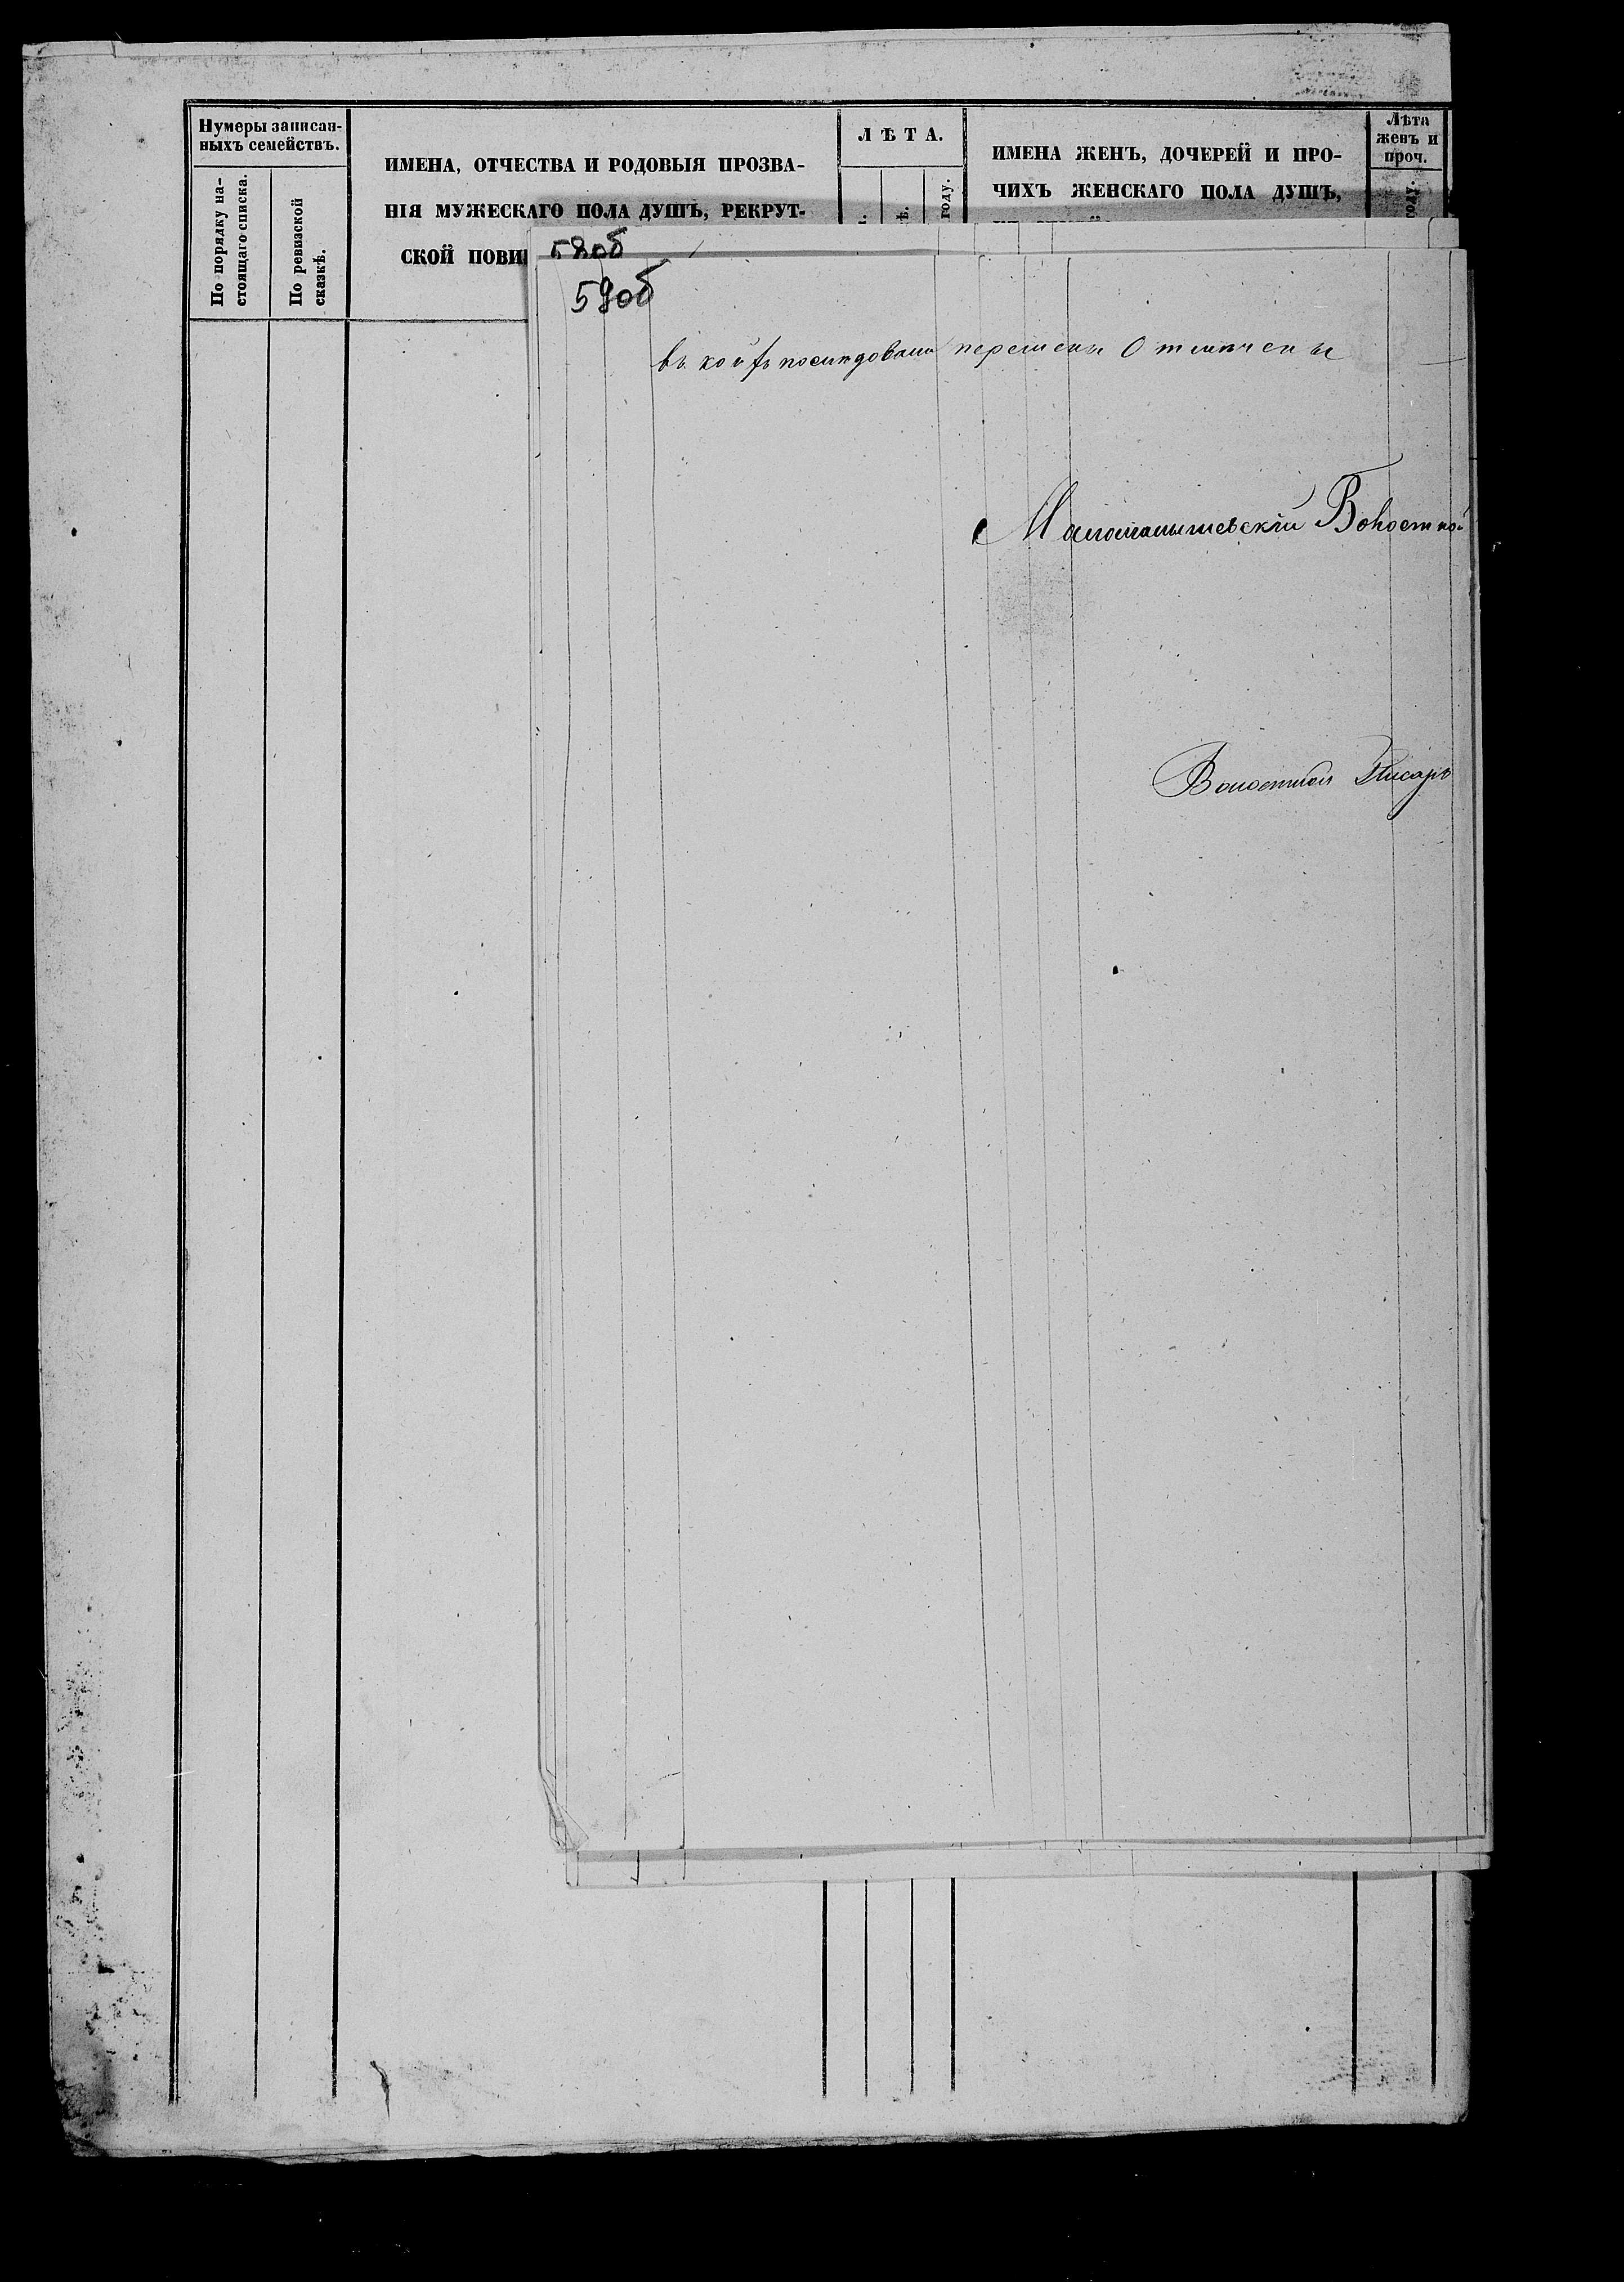 Нумеры записан-
ныхъ семействъ.
По порядку на-
стоящаго списка.
По ревизской
сказкѣ.
ИМЕНА, ОТЧЕСТВА И РОДОВЫЯ ПРОЗВА-
НІЯ МУЖЕСКАГО ПОЛА ДУШЪ, РЕКРУТ-
СКОЙ ПОВИН
ЛѢТА.
году.
ИМЕНА ЖЕНЪ, ДОЧЕРЕЙ И ПРО-
ЧИХЪ ЖЕНСКАГО ПОЛА ДУШЪ,
Лѣта
женъ и
проч.
году.
58об
59об
въ коихъ последовали перемены Отмечены
Волостной
Волостной Писарь